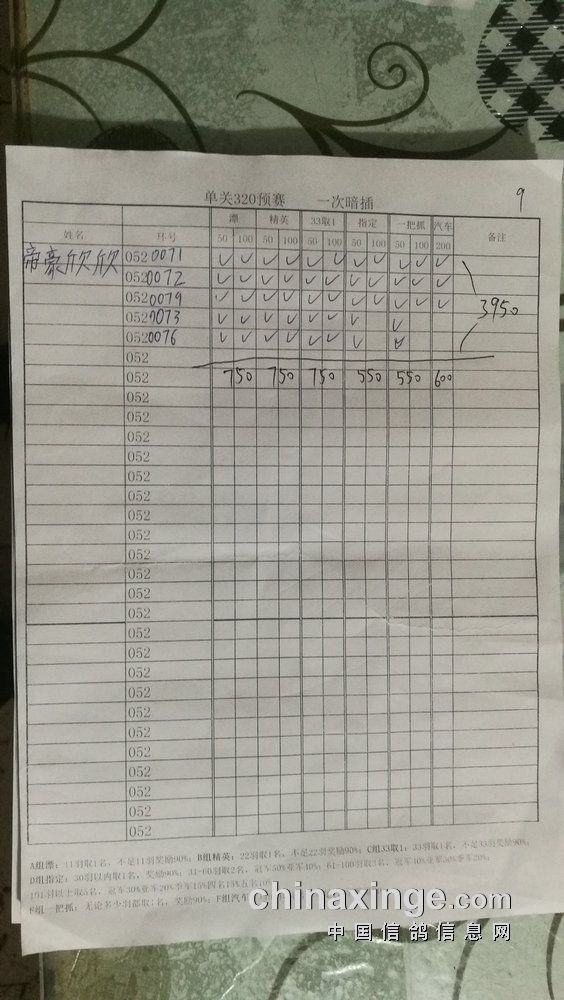 9
单关320预赛 一次暗插
姓名 环号 漂 精英 33取1 指定 一把抓 汽车 备注
50 100 50 100 50 100 50 100 50 100 200
帝豪欣欣 0520071 ✓ ✓ ✓ ✓ ✓ ✓ ✓ ✓ ✓ ✓ ✓
0520072 ✓ ✓ ✓ ✓ ✓ ✓ ✓ ✓ ✓ ✓ ✓
0520079 ✓ ✓ ✓ ✓ ✓ ✓ ✓ ✓ ✓ ✓ ✓ 3950
0520073 ✓ ✓ ✓ ✓ ✓ ✓ ✓ ✓
0520076 ✓ ✓ ✓ ✓ ✓ ✓ ✓ ✓
052
052 750 750 750 550 550 600
052
052
052
052
052
052
052
052
052
052
052
052
052
052
052
052
052
052
052
052
052
052
052
A组漂：11羽取1名，不足11羽奖励90%；B组精英：22羽取1名，不足22羽奖励90%；C组33取1：33羽取1名，不足33羽奖励90%；
D组指定：30羽以内取1名，奖励90%；31-60羽取2名，冠军50%亚军40%；61-100羽取3名，冠军40%亚军30%季军20%；
101羽以上取5名，冠军30%亚军20%季军15%四名15%五名10%
E组一把抓：无论多少羽都取1名，奖励90%；F组汽车
chinaxinge.com
中国信鸽信息网